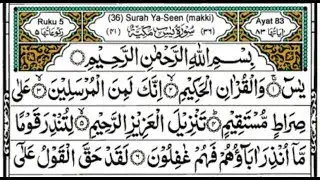 Ruku 5 (36) Surah Ya-Seen (makki) Ayat 83
رُكُوْعَاتُهَا ٥ (٤١) سُوْرَةُ يٰسٓ مَكِّيَّةٌ (٣٦) اٰيَاتُهَا ٨٣
بِسْمِ اللّٰهِ الرَّحْمٰنِ الرَّحِيْمِ
يٰسٓ ۝١ وَالْقُرْاٰنِ الْحَكِيْمِ ۝٢ اِنَّكَ لَمِنَ الْمُرْسَلِيْنَ ۝٣ عَلٰى
صِرَاطٍ مُّسْتَقِيْمٍ ۝٤ تَنْزِيْلَ الْعَزِيْزِ الرَّحِيْمِ ۝٥ لِتُنْذِرَ قَوْمًا
مَّاۤ اُنْذِرَ اٰبَآؤُهُمْ فَهُمْ غٰفِلُوْنَ ۝٦ لَقَدْ حَقَّ الْقَوْلُ عَلٰٓى